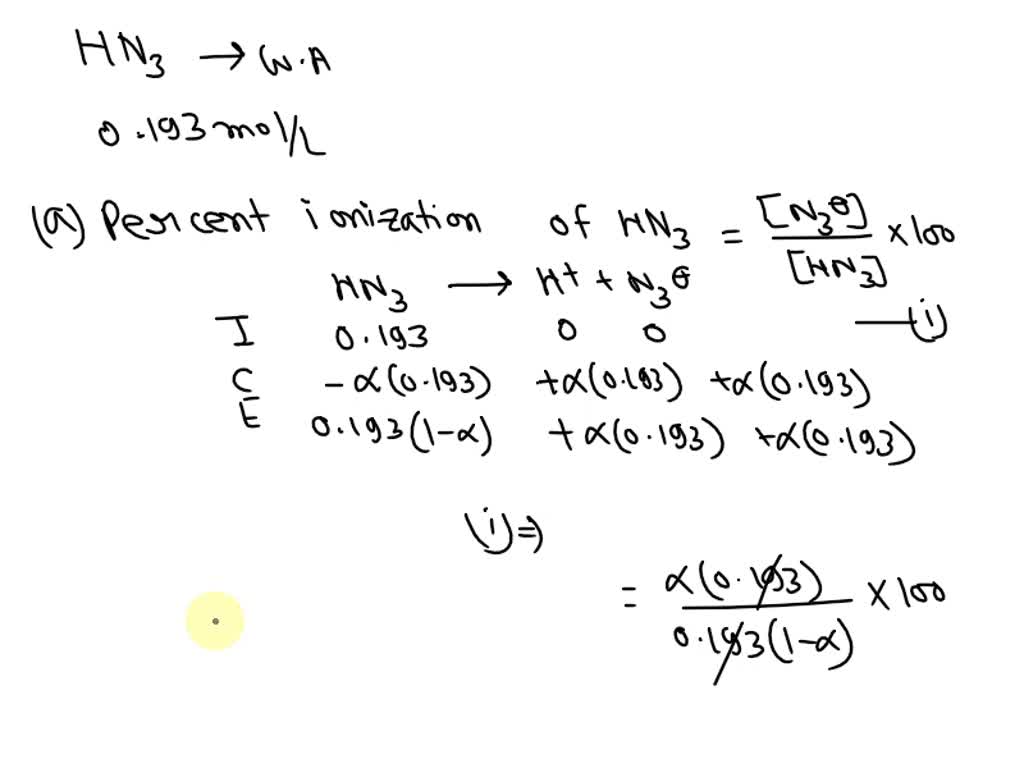 HN₃ → W.A
0.193 mol/L
(a) Percent ionization of HN₃ = [N₃⊖] / [HN₃] × 100
HN₃ ⟶ H⁺ + N₃⊖ —(i)
I 0.193 0 0
C -α(0.193) +α(0.193) +α(0.193)
E 0.193(1-α) +α(0.193) +α(0.193)
(i) ⇒
= α(0.193) / 0.193(1-α) × 100